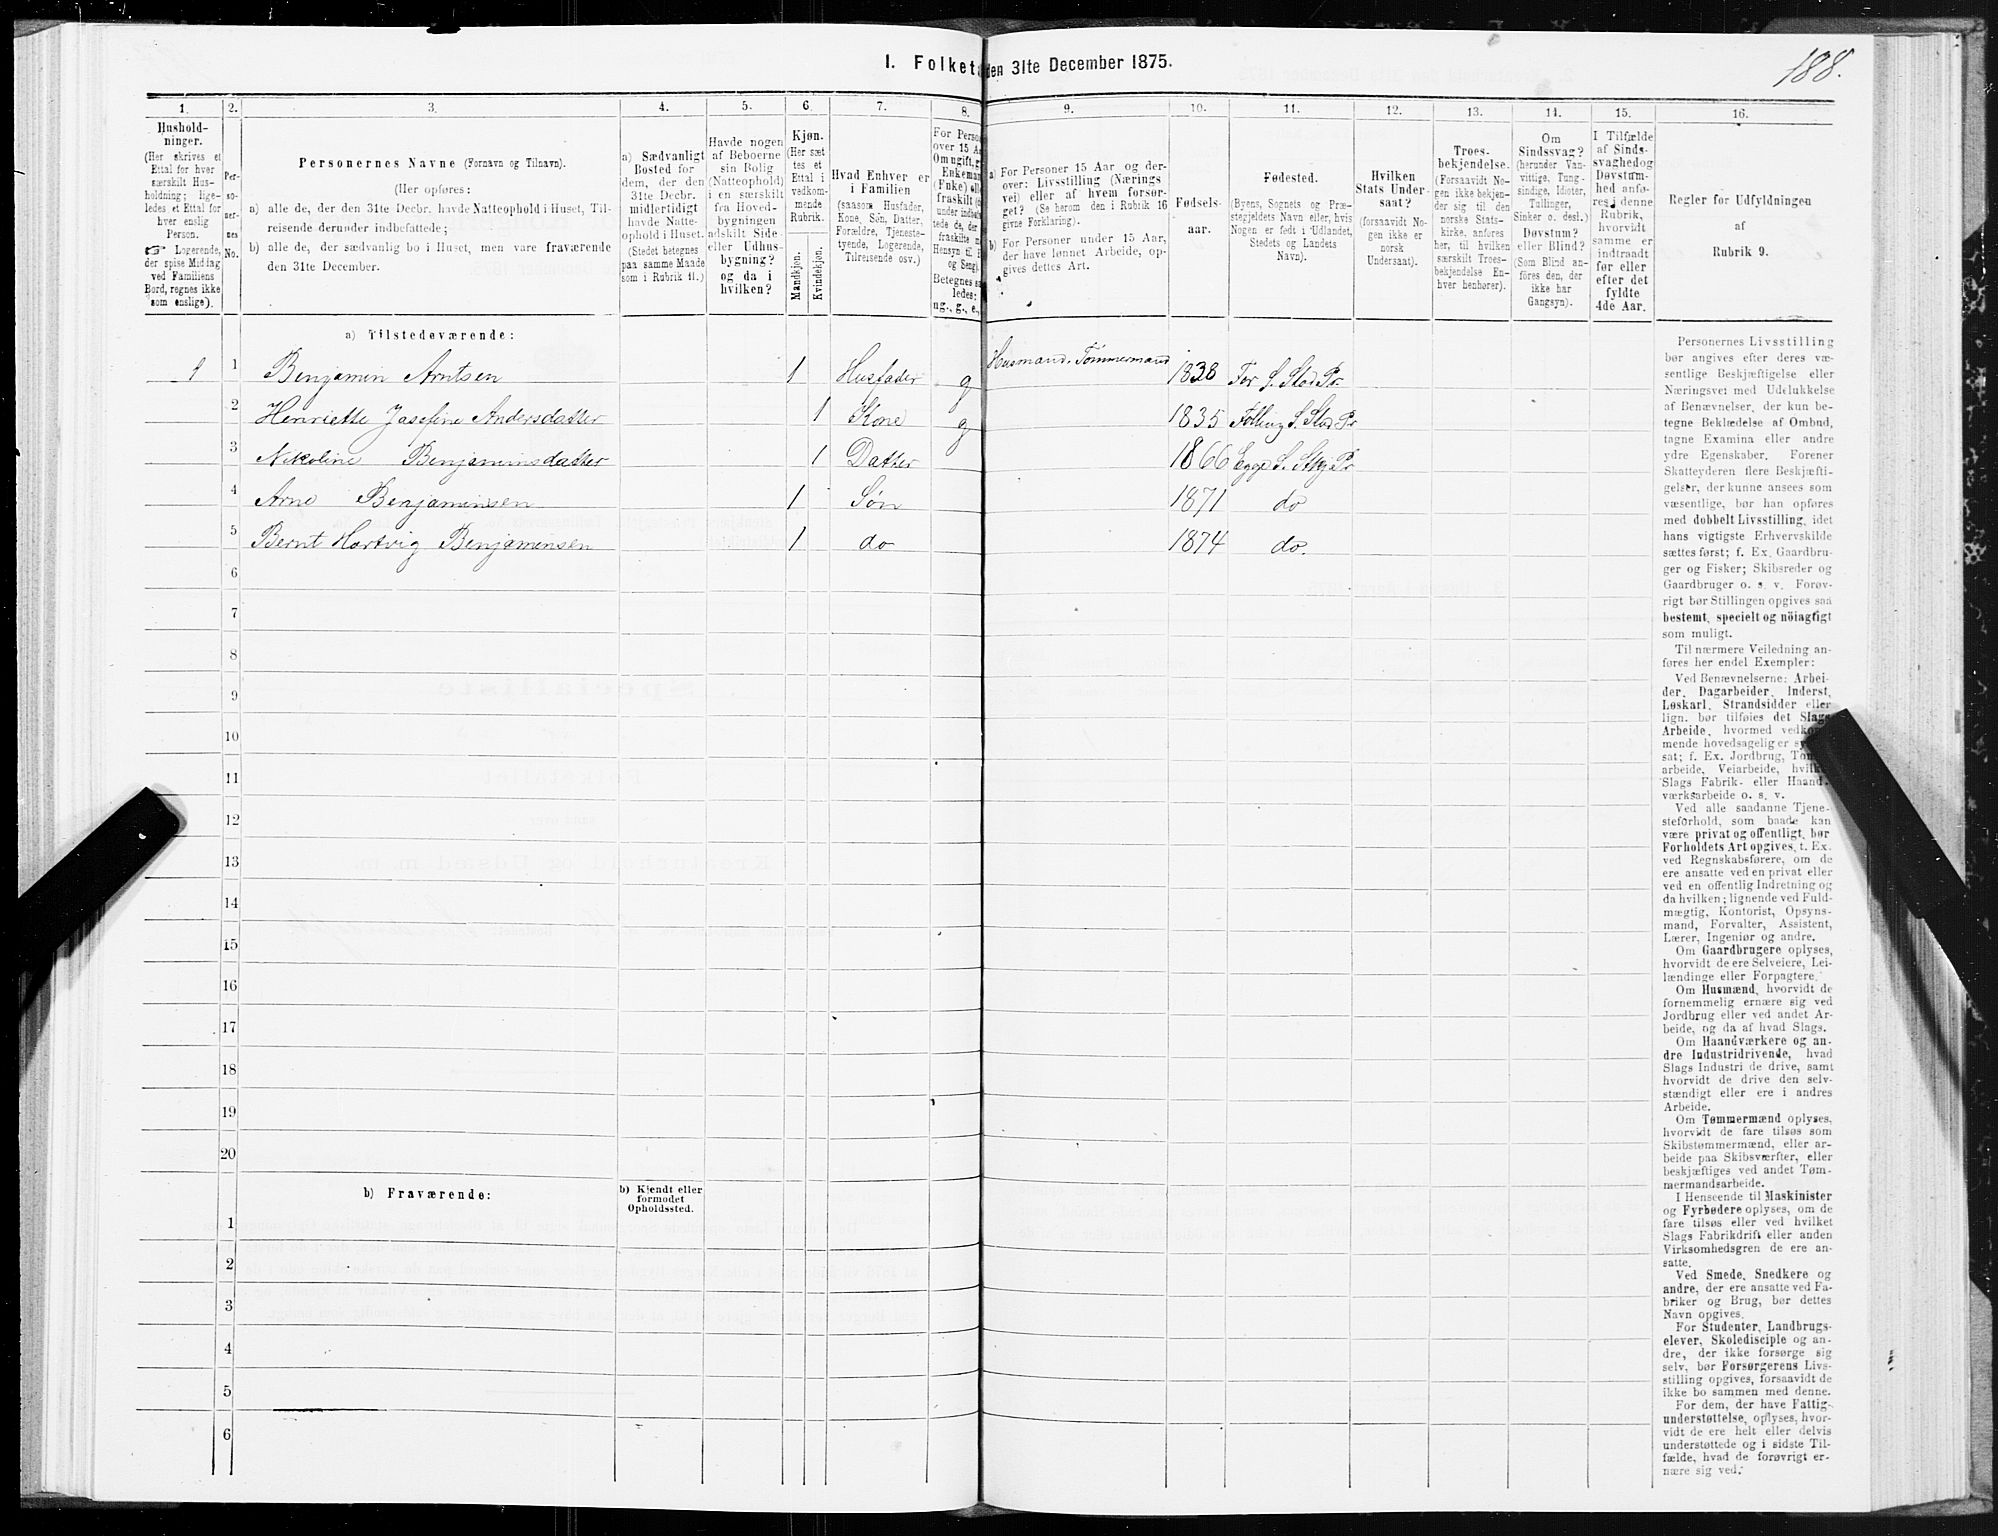 I. Folketæ den 31te December 1875.
188.
1. 2. 3. 4. 5. 6. 7. 8. 9. 10. 11. 12. 13. 14. 15. 16.
Hushold-
ninger.
(Her skrives et
Ettal for hver
særskilt Hus-
holdning; lige-
ledes et Ettal for
hver enslig
Person.
☞ Logerende,
der spise Middag
ved Familiens
Bord, regnes ikke
som enslige).
Per-
so-
ner-
nes
No.
Personernes Navne (Fornavn og Tilnavn).
(Her opføres:
a) alle de, der den 31te Decbr. havde Natteophold i Huset, Til-
reisende derunder indbefattede;
b) alle de, der sædvanlig bo i Huset, men vare fraværende
den 31te December.
a) Sædvanligt
Bosted for
dem, der den
31te Decbr.
midlertidigt
havde Natte-
ophold i Huset.
(Stedet betegnes
paa samme Maade
som i Rubrik 11.)
Havde nogen
af Beboerne
sin Bolig
(Natteophold)
i en særskilt
fra Hoved-
bygningen
adskilt Side-
eller Udhus-
bygning?
og da i
hvilken?
Kjøn.
(Her sæt
tes et
Ettal i
vedkom-
mende
Rubrik.
Mandkjøn.
Kvindekjøn.
Hvad Enhver er
i Familien
(saasom Husfader,
Kone, Søn, Datter,
Forældre, Tjeneste-
tyende, Logerende,
Tilreisende osv.).
For Perso
over 15 A
Om ugift, g
Enkeman
(Fnke) ell
fraskilt (s
under indb
tede de, der
fraskilte m
Hensyn til
og Seng).
Betegnes sa
ledes:
ug., g., e.,
a) For Personer 15 Aar og der-
over: Livsstilling (Nærings
vei) eller af hvem forsør-
get? (Se herom den i Rubrik 16
givne Forklaring).
b) For Personer under 15 Aar,
der have lønnet Arbeide, op-
gives dettes Art.
Fødsels-
aar.
Fødested.
(Byens, Sognets og Præ-
stegjeldets Navn eller, hvis
Nogen er født i Udlandet,
Stedets og Landets
Navn).
Hvilken
Stats Under-
saat?
(forsaavidt No-
gen ikke er
norsk
Undersaat).
Troes-
bekjendelse.
(Forsaavidt No-
gen ikke bekjen-
der sig til den
norske Stats-
kirke, anføres
her, til hvilken
særskilt Troes-
bekjendelse En-
hver henhører).
Om
Sindssvag?
(herunder Van-
vittige, Tung-
sindige, Idioter,
Tullinger,
Sinker o. desl.)
Døvstum?
eller Blind?
(Som Blind an-
føres den, der
ikke har
Gangsyn).
I Tilfælde
af Sinds-
svaghed og
Døvstum-
hed anfø-
res i denne
Rubrik,
hvorvidt
samme er
indtraadt
før eller
efter det
fyldte
4de Aar.
Regler for Udfyldningen
af
Rubrik 9.
a) Tilstedeværende:
1 1 Benjamin Arntsen 1 Husfader g Husmand. Tömmermand 1838 For S. Stod Pr
2 Henriette Josefine Andersdatter 1 Kone g 1835 Følling S. Stod Pr
3 Nikoline Benjaminsdatter 1 Datter 1866 Egge S. Stkj Pr
4 Arne Benjaminsen 1 Søn 1871 do
5 Bernt Hartvig Benjaminsen 1 do 1874 do.
6
7
8
9
10
11
12
13
14
15
16
17
18
19
20
b) Fraværende:
b) Kjendt eller
formodet
Opholdssted.
1
2
3
4
5
6
Personernes Livsstilling
bør angives efter deres væ-
sentlige Beskjæftigelse eller
Næringsvei med Udelukkelse
af Benævnelser, der kun be-
tegne Beklædelse af Ombud,
tagne Examina eller andre
ydre Egenskaber. Forener
Skatteyderen flere Beskjæfti-
gelser, der kunne ansees som
væsentlige, bør han opføres
med dobbelt Livsstilling, idet
hans vigtigste Erhvervskilde
sættes først; f. Ex. Gaardbru-
ger og Fisker; Skibsreder og
Gaardbruger o. s. v. Forøv-
rigt bør Stillingen opgives saa
bestemt, specielt og nöiagtigt
som muligt.
Til nærmere Veiledning an-
føres her endel Exempler:
Ved Benævnelserne: Arbei-
der, Dagarbeider, Inderst,
Løskarl, Strandsidder eller
lign. bør tilføies det Slags
Arbeide, hvormed vedkom-
mende hovedsagelig er sys
sat; f. Ex. Jordbrug, Töm
arbeide, Veiarbeide, hvilk
Slags Fabrik- eller Haand-
værksarbeide o. s. v.
Ved alle saadanne Tjene-
steforhold, som baade kan
være privat og offentligt, bør
Forholdets Art opgives, t. Ex.
ved Regnskabsførere, om de
ere ansatte ved en privat eller
ved en offentlig Indretning og
da hvilken; lignende ved Fuld-
mægtig, Kontorist, Opsyns-
mand, Forvalter, Assistent,
Lærer, Ingeniør og andre.
Om Gaardbrugere oplyses,
hvorvidt de ere Selveiere, Lei-
lændinge eller Forpagtere.
Om Husmænd, hvorvidt de
fornemmelig ernære sig ved
Jordbrug eller ved andet Ar-
beide, og da af hvad Slags.
Om Haandværkere og an-
dre Industridrivende, hvad
Slags Industri de drive, samt
hvorvidt de drive den selv-
stændigt eller ere i andres
Arbeide.
Om Tømmermænd oplyses,
hvorvidt de fare tilsøs som
Skibstømmermænd, eller ar-
beide paa Skibsværfter, eller
beskjæftiges ved andet Tøm-
mermandsarbeide.
I Henseende til Maskinister
og Fyrbødere oplyses, om de
fare tilsøs eller ved hvilket
Slags Fabrikdrift eller anden
Virksomhedsgren de ere an-
satte.
Ved Smede, Snedkere og
andre, der ere ansatte ved Fa-
briker og Brug, bør dettes
Navn opgives.
For Studenter, Landbrugs-
elever, Skoledisciple og an-
dre, der ikke forsørge sig
selv, bør Forsørgerens Livs-
stilling opgives, forsaavidt de
ikke bo sammen med denne.
For dem, der have Fattig-
understøttelse, oplyses, hvor-
vidt de ere helt eller delvis
understøttede og i sidste Til-
fælde, hvad de forøvrigt er-
nære sig ved.